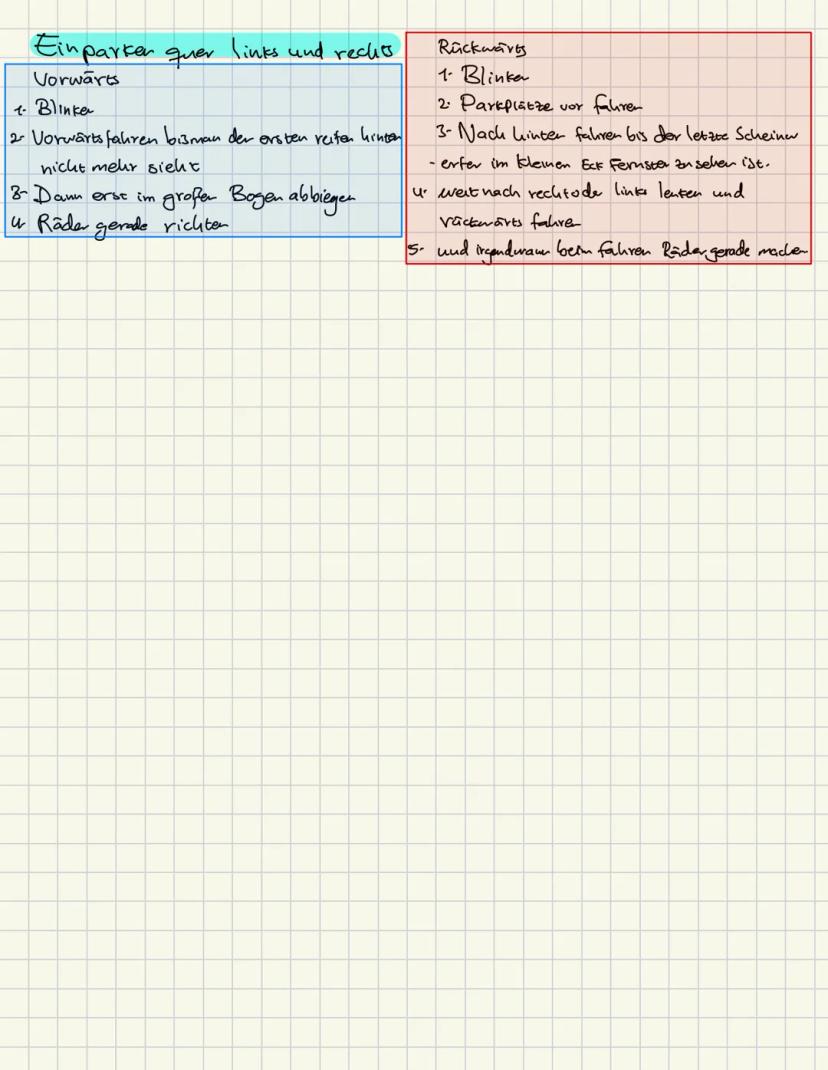 Einparken quer links und rechts
Vorwärts
1. Blinken
2- Vorwärtsfahren bis man der ersten reifen hinten
nicht mehr sieht
3- Dann erst im großen Bogen abbiegen
4 Räder gerade richten
Rückwärts
1. Blinken
2. Parkplätze vor fahren
3- Nach hinten fahren bis der letzte Scheinw
-erfer im kleinen Eck Fernster zu sehen ist.
4. weit nach recht ode links lenken und
rückwärts fahren
5- und irgendwann beim fahren Räder gerade machen